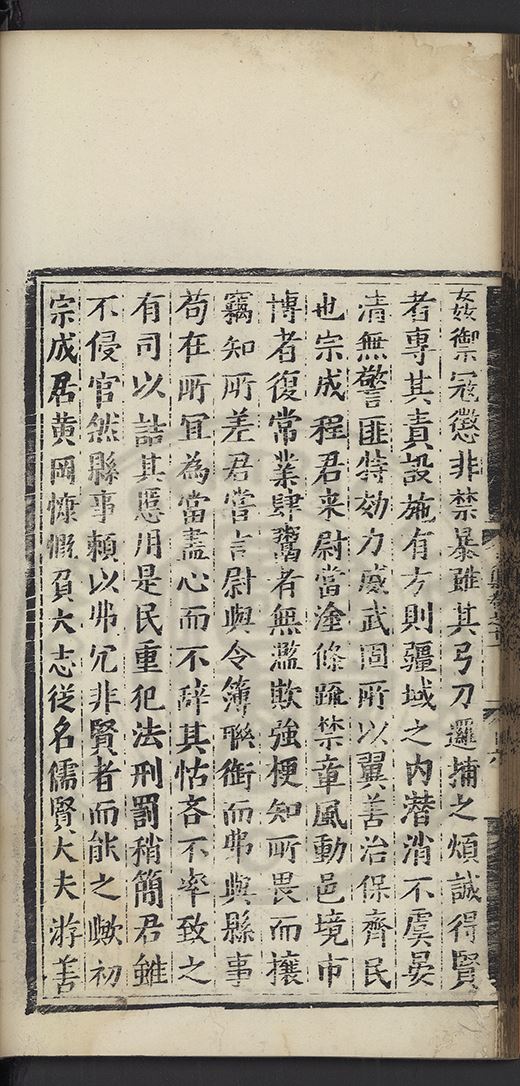 姦禦寇懲非禁暴雖其弓刀邏捕之煩誠得賢
者專其責設施有方則疆域之内潜消不虞晏
清無警匪特効力威武固所以翼善治保齊民
也宗成程君来尉當塗條疏禁章風動邑境市
博者復常業肆鬻者無濫欺強梗知所畏而攘
竊知所差君嘗言尉與令簿聯銜而弗與縣事
苟在所宜為當盡心而不辞其怙吝不率致之
有司以詰其慝用是民重犯法刑罰稍簡君雖
不侵官然縣事頼以弗冗非賢者而能之歟初
宗成居黄岡慷慨負大志従名儒賢大夫游善